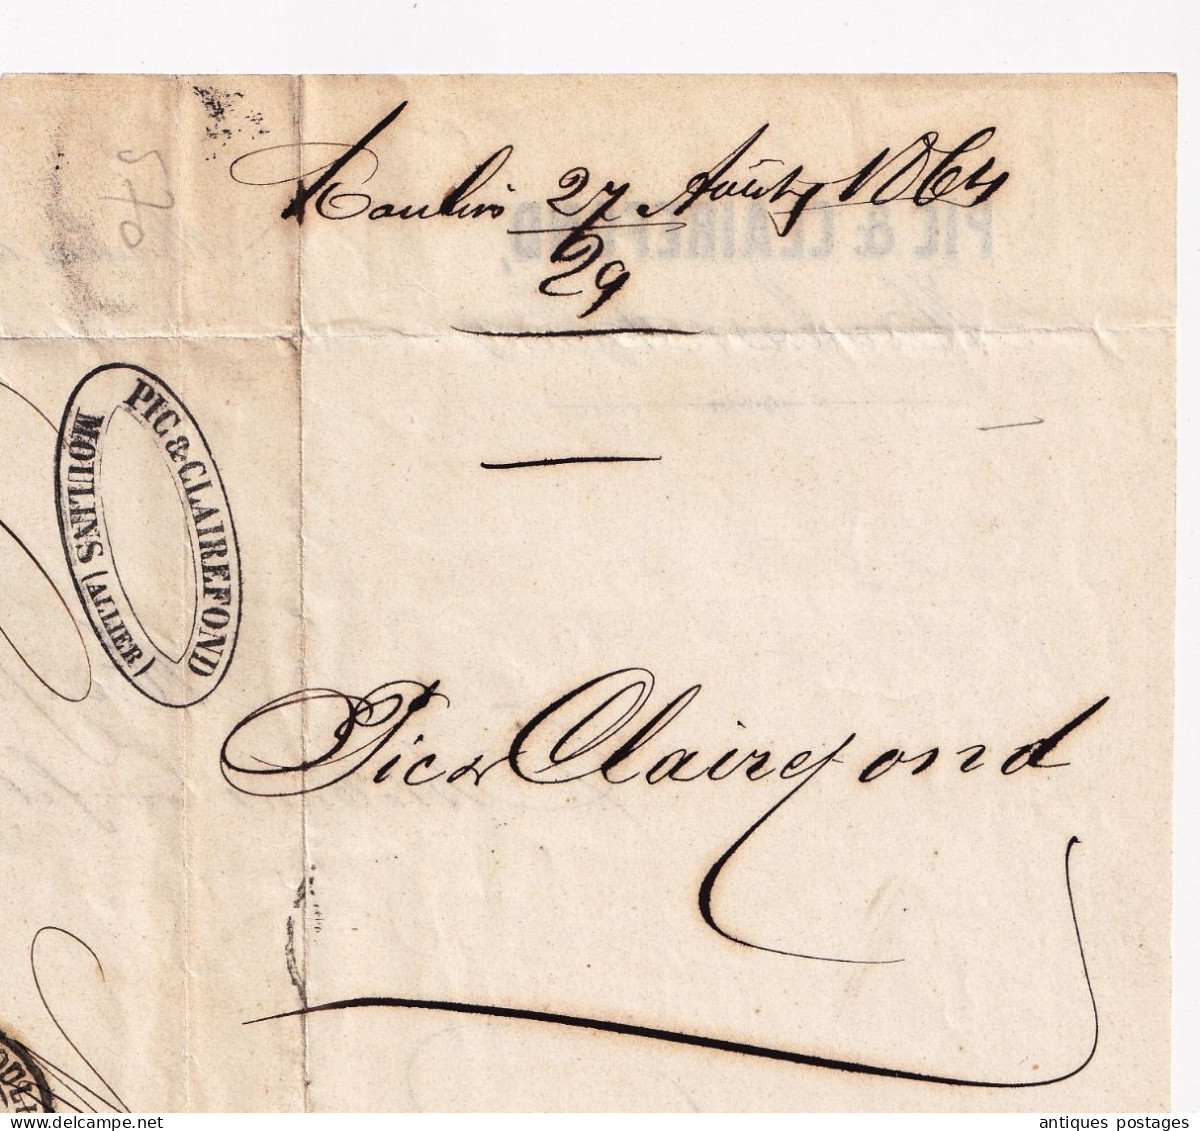 Moulins 27 Août 1864
29
PIC & CLAIREFOND,
270
PIC & CLAIREFOND
MOULINS (ALLIER)
Pic & Clairefond
antiques postages